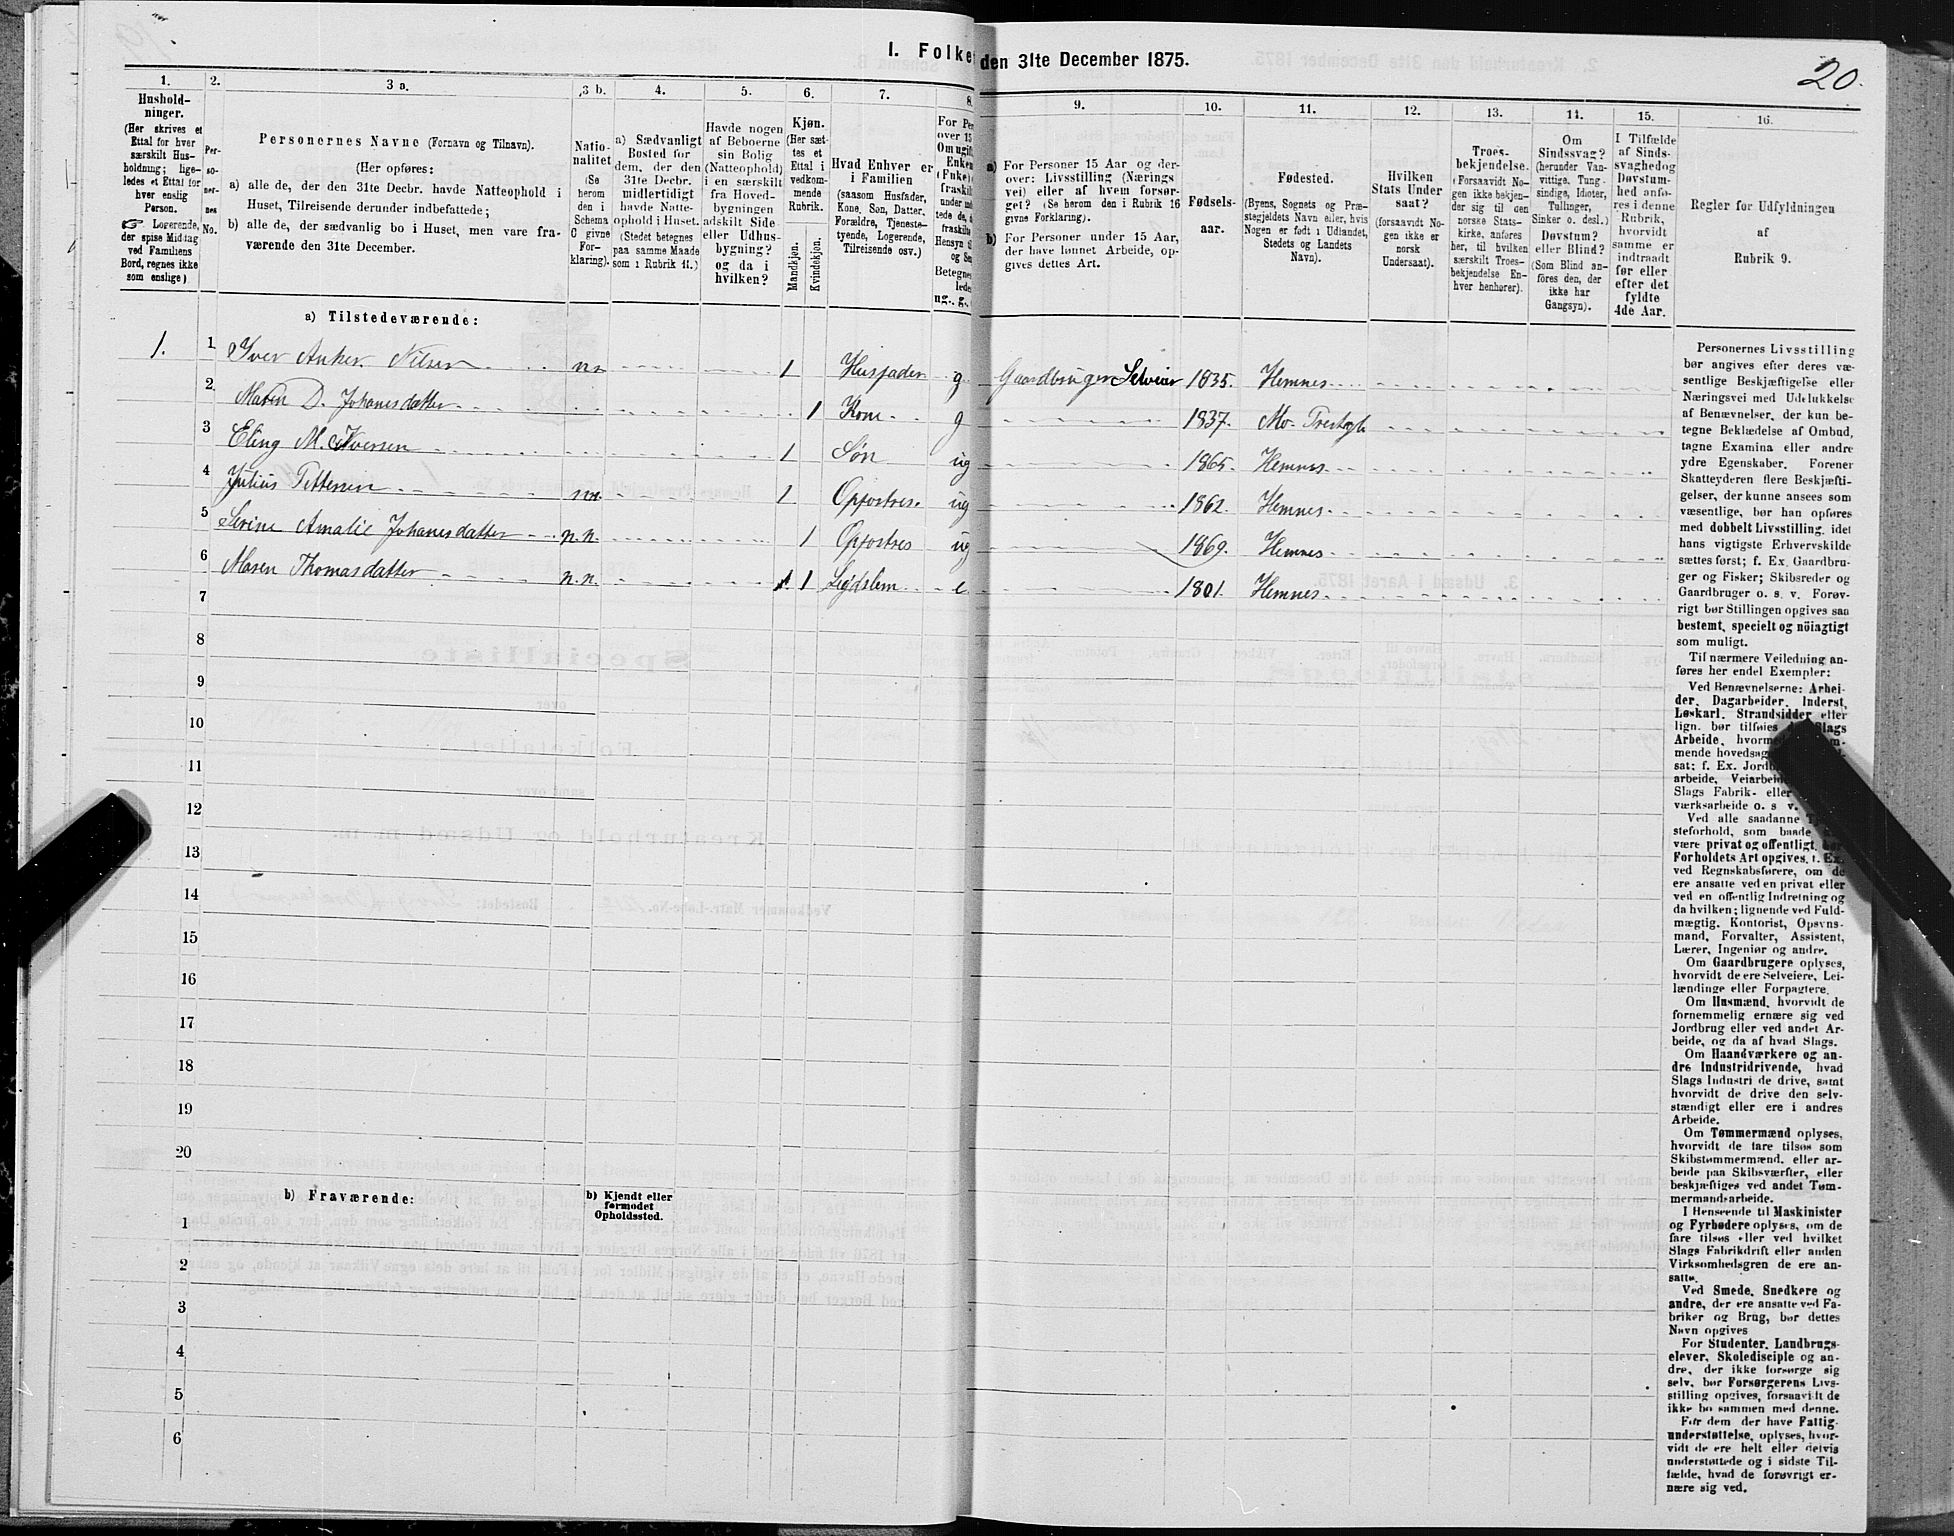 I. Folke den 31te December 1875.
20.
1. 2. 3 a. 3 b. 4. 5. 6. 7. 8. 9. 10. 11. 12. 13. 14. 15. 16.
Hushold-
ninger.
(Her skrives et
Ettal for hver
særskilt Hus-
holdning; lige-
ledes et Ettal for
hver enslig
Person.
☞ Logerende,
der spise Middag
ved Familiens
Bord, regnes ikke
som enslige)
Per-
so-
ner-
nes
No.
Personernes Navne (Fornavn og Tilnavn).
(Her opføres:
a) alle de, der den 31te Decbr. havde Natteophold i
Huset, Tilreisende derunder indbefattede;
b) alle de, der sædvanlig bo i Huset, men vare fra-
værende den 31te December.
Natio-
nalitet
(Se
herom
den i
Schema
C givne
For-
klaring).
a) Sædvanligt
Bosted for
dem, der den
31te Decbr.
midlertidigt
havde Natte-
ophold i Huset.
(Stedet betegnes
paa samme Maade
som i Rubrik 11.)
Havde nogen
af Beboerne
sin Bolig
(Natteophold)
i en særskilt
fra Hoved-
bygningen
adskilt Side-
eller Udhus-
bygning?
og da i
hvilken?
Kjøn.
(Her sæt-
tes et
Ettal i
vedkom-
mende
Rubrik.
Mandkjøn.
Kvindekjøn.
Hvad Enhver er
i Familien
(saasom Husfader,
Kone, Søn, Datter,
Forældre, Tjeneste-
tyende, Logerende,
Tilreisende osv.)
For Per
over 15
Om ugift
Enken
(Enke)
fraskilt
under
tede de,
fraskilte
Hensyn ti
og Se
Betegnes
lede
ug., g.,
a) For Personer 15 Aar og der-
over: Livsstilling (Nærings
vei) eller af hvem forsør-
get? (Se herom den i Rubrik 16
givne Forklaring).
b) For Personer under 15 Aar,
der have lønnet Arbeide, op-
gives dettes Art.
Fødsels-
aar.
Fødested.
(Byens, Sognets og Præ-
stegjeldets Navn eller, hvis
Nogen er født i Udlandet,
Stedets og Landets
Navn).
Hvilken
Stats Under
saat?
(forsaavidt No-
gen ikke er
norsk
Undersaat).
Troes-
bekjendelse.
(Forsaavidt No-
gen ikke bekjen-
der sig til den
norske Stats-
kirke, anføres
her, til hvilken
særskilt Troes-
bekjendelse En-
hver henhører).
Om
Sindssvag?
(herunder Van-
vittige, Tung-
sindige, Idioter,
Tullinger,
Sinker o. desl.)
Døvstum?
eller Blind?
(Som Blind an-
føres den, der
ikke har
Gangsyn).
I Tilfælde
af Sinds-
svaghedog
Døvstum-
hed anfø-
res i denne
Rubrik,
hvorvidt
samme er
indtraadt
før eller
efter det
fyldte
4de Aar.
Regler for Udfyldningen
af
Rubrik 9.
a) Tilstedeværende:
1. 1 Iver Anker Nilsen nn 1 Husfader g Gaardbruger Selveier 1835. Hemnes
2 Maren D. Johanesdatter 1 Kone g 1837. Mo
3 Eling M. Iversen 1 Søn ug 1865. Hemnes
4 Julius Pettersen nn 1 Opfostres ug 1862. Hemnes
5 Serine Amalie Johanesdatter n.n. 1 Opfostres ug 1869. Hemnes
6 Maren Thomasdatter n.n. 1 Legdslem e 1801. Hemnes
7
8
9
10
11
12
13
14
15
16
17
18
19
20
b) Fraværende:
b) Kjendt eller
formodet
Opholdssted.
1
2
3
4
5
6
Personernes Livsstilling
bør angives efter deres væ-
sentlige Beskjæftigelse eller
Næringsvei med Udelukkelse
af Benævnelser, der kun be-
tegne Beklædelse af Ombud,
tagne Examina eller andre
ydre Egenskaber. Forener
Skatteyderen flere Beskjæfti-
gelser, der kunne ansees som
væsentlige, bør han opføres
med dobbelt Livsstilling, idet
hans vigtigste Erhvervskilde
sættes først; f. Ex. Gaardbru-
ger og Fisker; Skibsreder og
Gaardbruger o. s. v. Forøv-
rigt bør Stillingen opgives saa
bestemt, specielt og nöiagtigt
som muligt.
Til nærmere Veiledning an-
føres her endel Exempler:
Ved Benævnelserne: Arbei-
der, Dagarbeider, Inderst,
Løskarl, Strandsidder eller
lign. bør tilføies Slags
Arbeide, hvorm
mende hovedsag
sat; f. Ex. Jord
arbeide, Veiarbei
Slags Fabrik- eller
værksarbeide o. s v.
Ved alle saadanne
steforhold, som baade
være privat og offentligt,
Forholdets Art opgives, f. Ex.
ved Regnskabsførere, om de
ere ansatte ved en privat eller
ved en offentlig Indretning og
da hvilken; lignende ved Fuld-
mægtig, Kontorist, Opsyns-
mand, Forvalter, Assistent,
Lærer, Ingeniør og andre.
Om Gaardbrugere oplyses,
hvorvidt de ere Selveiere, Lei-
lændinge eller Forpagtere.
Om Husmænd, hvorvidt de
fornemmelig ernære sig ved
Jordbrug eller ved andet Ar-
beide, og da af hvad Slags.
Om Haandværkere og an-
dre Industridrivende, hvad
Slags Industri de drive, samt
hvorvidt de drive den selv-
stændigt eller ere i andres
Arbeide.
Om Tømmermænd oplyses,
hvorvidt de fare tilsøs som
Skibstømmermænd, eller ar-
beide paa Skibsværfter, eller
beskjæftiges ved andet Tøm-
mermandsarbeide.
I Henseende til Maskinister
og Fyrbødere oplyses, om de
fare tilsøs eller ved hvilket
Slags Fabrikdrift eller anden
Virksomhedsgren de ere an-
satte.
Ved Smede, Snedkere og
andre, der ere ansatte ved Fa-
briker og Brug, bør dettes
Navn opgives
For Studenter, Landbrugs-
elever, Skoledisciple og an-
dre, der ikke forsørge sig
selv, bør Forsørgerens Livs-
stilling opgives, forsaavidt de
ikke bo sammen med denne.
For dem der have Fattig-
understøttelse, oplyses, hvor-
vidt de ere helt eller delvis
understøttede og i sidste Til-
fælde, hvad de forøvrigt er-
nære sig ved.